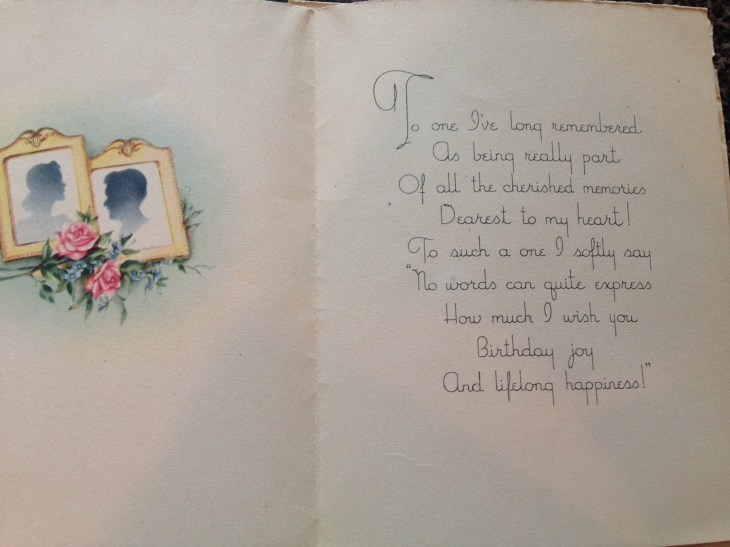 To one I've long remembered
As being really part
Of all the cherished memories
Dearest to my heart!
To such a one I softly say
"No words can quite express
How much I wish you
Birthday joy
And lifelong happiness!"